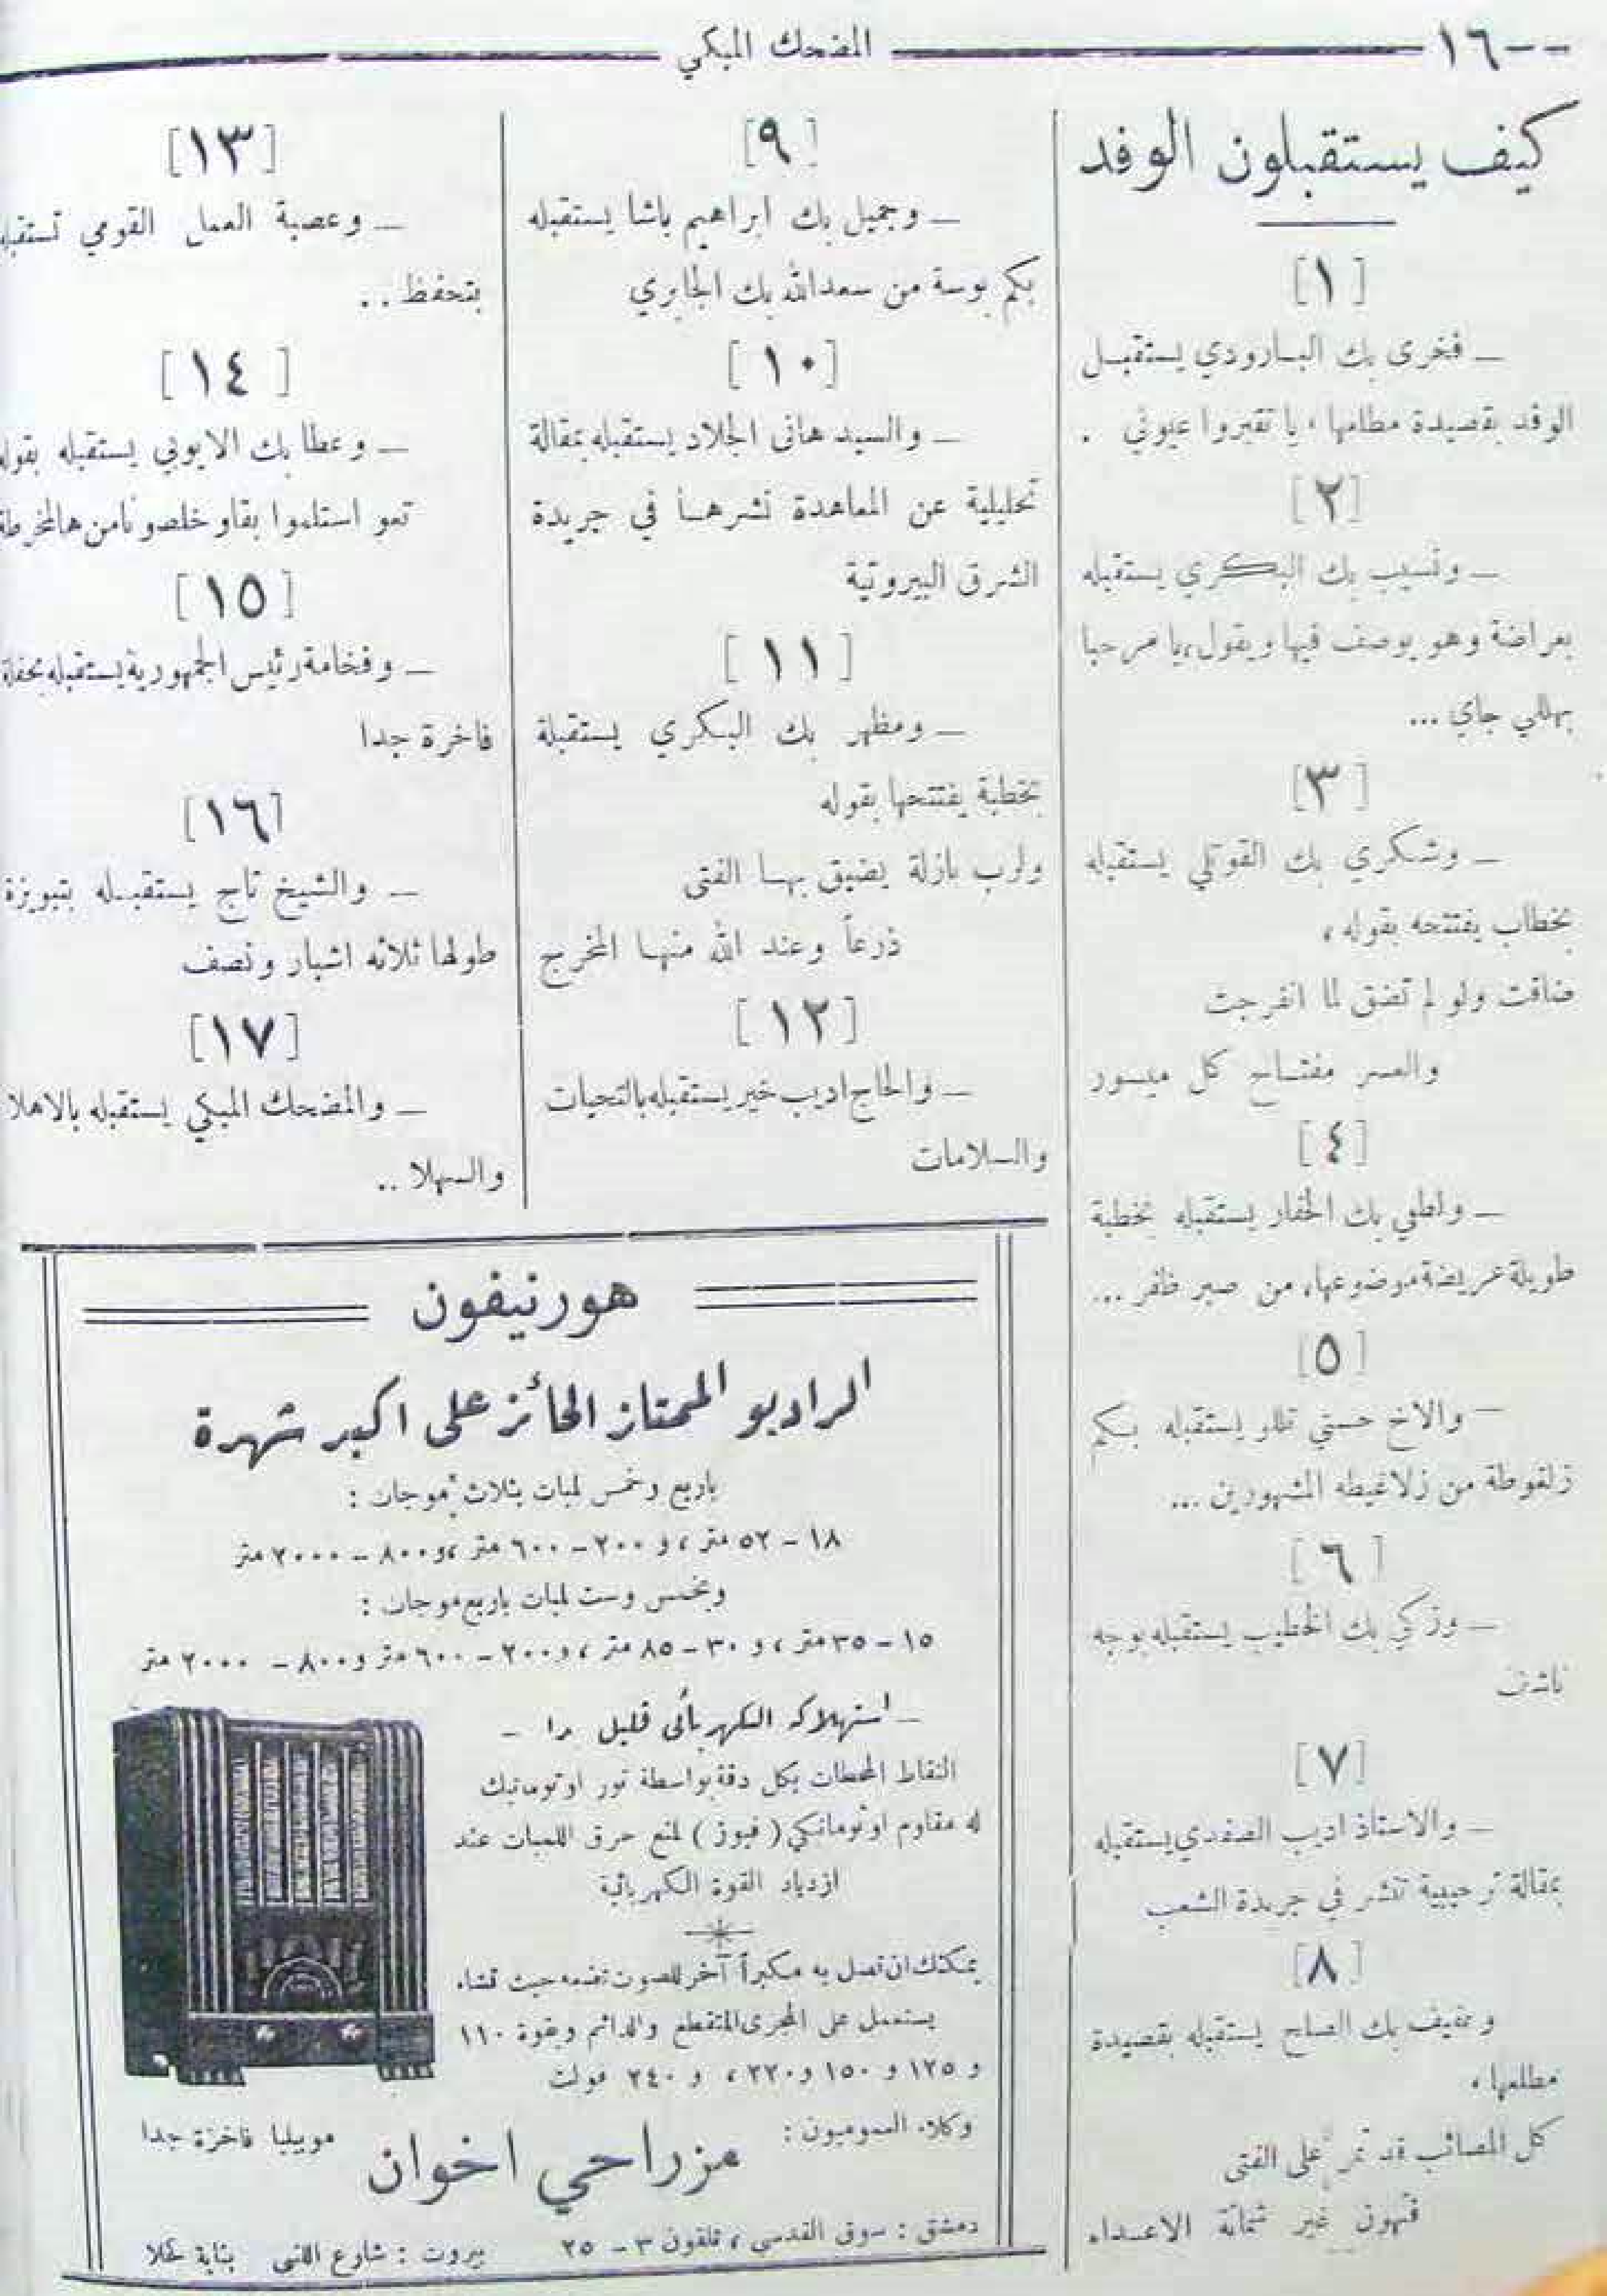 ١٦--
المضحك المبكي
كيف يستقبلون الوفد
[١]
— فخري بك البارودي يستقبل
الوفد بقصيدة مطلعها ، يا تقبروا عيوني .
[٢]
— ونسيب بك البكري يستقبله
بعراضة وهو يوصف فيها ويقول، يا مرحبا
بهللي جاي ...
[٣]
— وشكري بك القوتلي يستقبله
بخطاب يفتتحه بقوله ،
ضاقت ولو لم تضق لما انفرجت
والعسر مفتاح كل ميسور
[٤]
— ولطفي بك الحفار يستقبله بخطبة
طويلة عريضة موضوعها، من صبر ظفر ...
[٥]
— والاخ حسني تللو يستقبله بكم
زلغوطة من زلاغيطه المشهورين ...
[٦]
— وزكي بك الخطيب يستقبله بوجه
ناشف
[٧]
— والاستاذ اديب الصفدي يستقبله
بمقالة ترحيبية تنشر في جريدة الشعب
[٨]
وعفيف بك الصلح يستقبله بقصيدة
مطلعها ،
كل المصائب قد تمر على الفتى
فتهون غير شماتة الاعداء
[٩]
— وجميل بك ابراهيم باشا يستقبله
بكم بوسة من سعدالله بك الجابري
[١٠]
— والسيد هاني الجلاد يستقبله بمقالة
تحليلية عن المعاهدة نشرها في جريدة
الشرق البيروتية
[١١]
— ومظهر بك البكري يستقبلة
بخطبة يفتتحها بقوله
ولرب نازلة يضيق بها الفتى
ذرعاً وعند الله منها المخرج
[١٢]
— والحاج اديب خير يستقبله بالتحيات
والسلامات
[١٣]
— وعصبة العمل القومي تستقبله
بتحفظ ..
[١٤]
— وعطا بك الايوبي يستقبله بقوله
تعو استلموا بقا وخلصونا من هالمخرطة
[١٥]
— وفخامة رئيس الجمهورية يستقبله بحفلة
فاخرة جدا
[١٦]
— والشيخ تاج يستقبله بتبويزة
طولها ثلاثه اشبار ونصف
[١٧]
— والمضحك المبكي يستقبله بالاهلا
والسهلا ..
هورنيفون
الراديو الممتاز الحائز على اكبر شهرة
باربع وخمس لمبات بثلاث موجات :
١٨ – ٥٢ متر ، و ٢٠٠ – ٦٠٠ متر ،و ٨٠٠ – ٢٠٠٠ متر
وبخمس وست لمبات باربع موجات :
١٥ – ٣٥ متر ، و ٣٠ – ٨٥ متر ، و ٢٠٠ – ٦٠٠ متر و ٨٠٠ – ٢٠٠٠ متر
— استهلاكه الكهربائي قليل —
التقاط المحطات بكل دقة بواسطة نور اوتوماتيك
له مقاوم اوتوماتيكي ( فيوز ) لمنع حرق اللمبات عند
ازدياد القوة الكهربائية
يمكنك ان تصل به مكبراً آخر للصوت تضعه حيث تشاء
يستعمل على المجرى المتقطع والدائم وبقوة ١١٠
و ١٢٥ و ١٥٠ و ٢٢٠ ، و ٢٤٠ فولت
وكلاء العموميون :
مزراحي اخوان
موبيليا فاخرة جدا
دمشق : سوق القدسي ، تلفون ٣ – ٢٥
بيروت : شارع اللنبي بناية